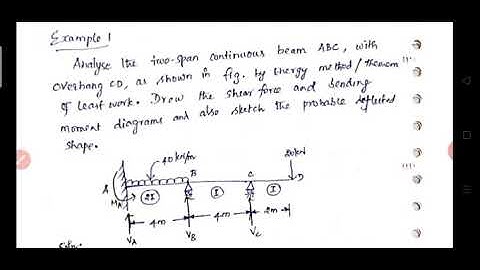 Example 1
Analyse the two-span continuous beam ABC, with
overhang CD, as shown in fig. by Energy method / theorem
of least work. Draw the shear force and bending
moment diagrams and also sketch the probable deflected
shape.
40 kN/m
20kN
A
B
C
D
MA
2I
I
I
4m
4m
2m
VA
VB
VC
Soln: